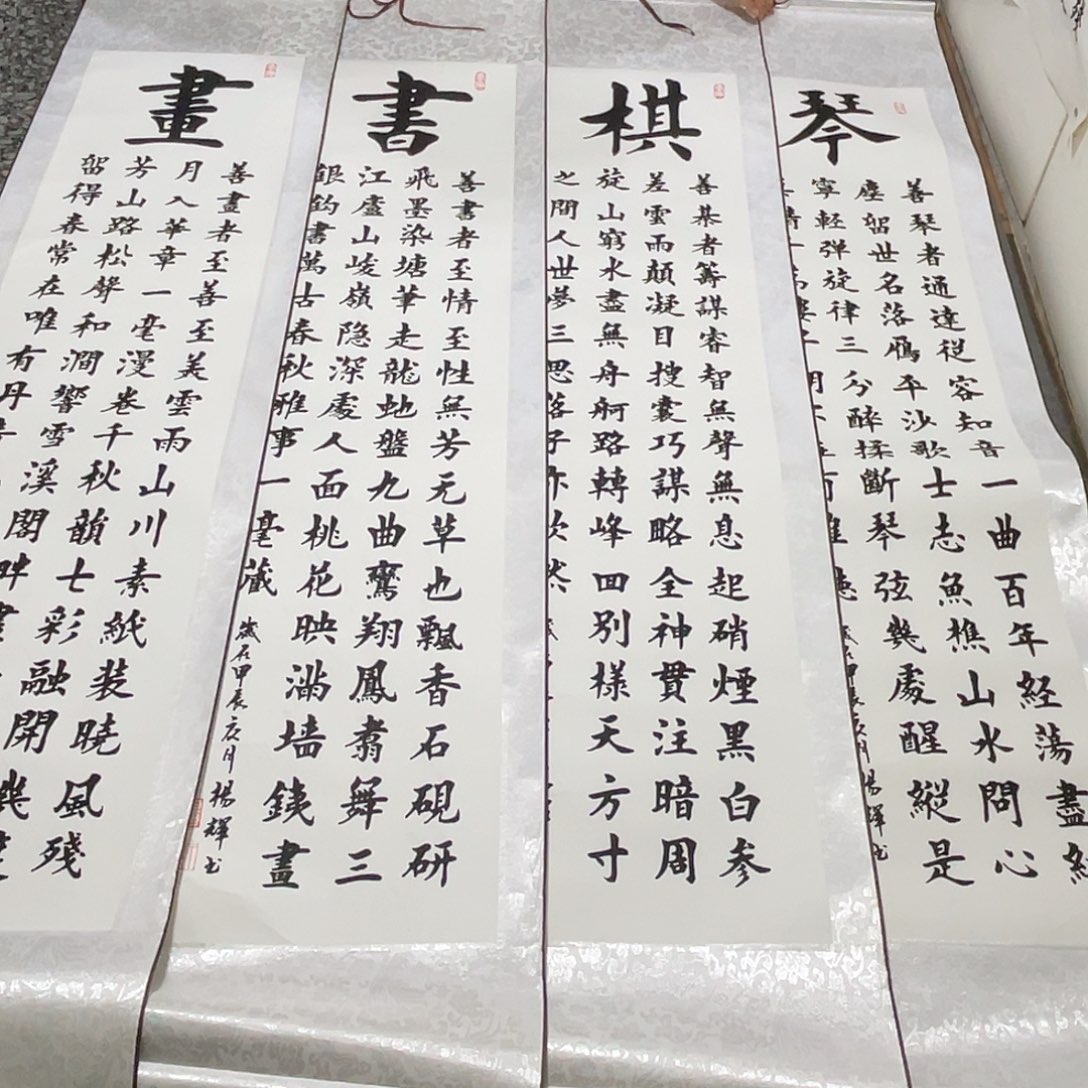 琴
善琴者通達從容知音一曲百年経蕩盡
塵留世名落鴈平沙歌士志魚樵山水問心
寧輕弹旋律三分醉揉斷琴弦幾處醒縱是
歲在甲辰 楊輝书
棋
善棊者籌謀睿智無聲無息起硝煙黑白参
差雲雨顛凝目搜囊巧謀略全神貫注暗周
旋山窮水盡無舟舸路轉峰回别樣天方寸
之間人世夢三思落子亦欣然
書
善書者至情至性無芳无草也飄香石硯研
飛墨染塘華走龍虵盤九曲鸞翔鳳翥舞三
江廬山峻嶺隐深處人面桃花映滿墙鉄畫
銀鈎書萬古春秋雅事一毫蔵
歲在甲辰庚月楊輝书
畫
善畫者至善至美雲雨山川素紙装曉風殘
月入華章一毫漫卷千秋韻七彩融開幾
芳山路松聲和澗響雪溪閣畔畫
留得春常在唯有丹